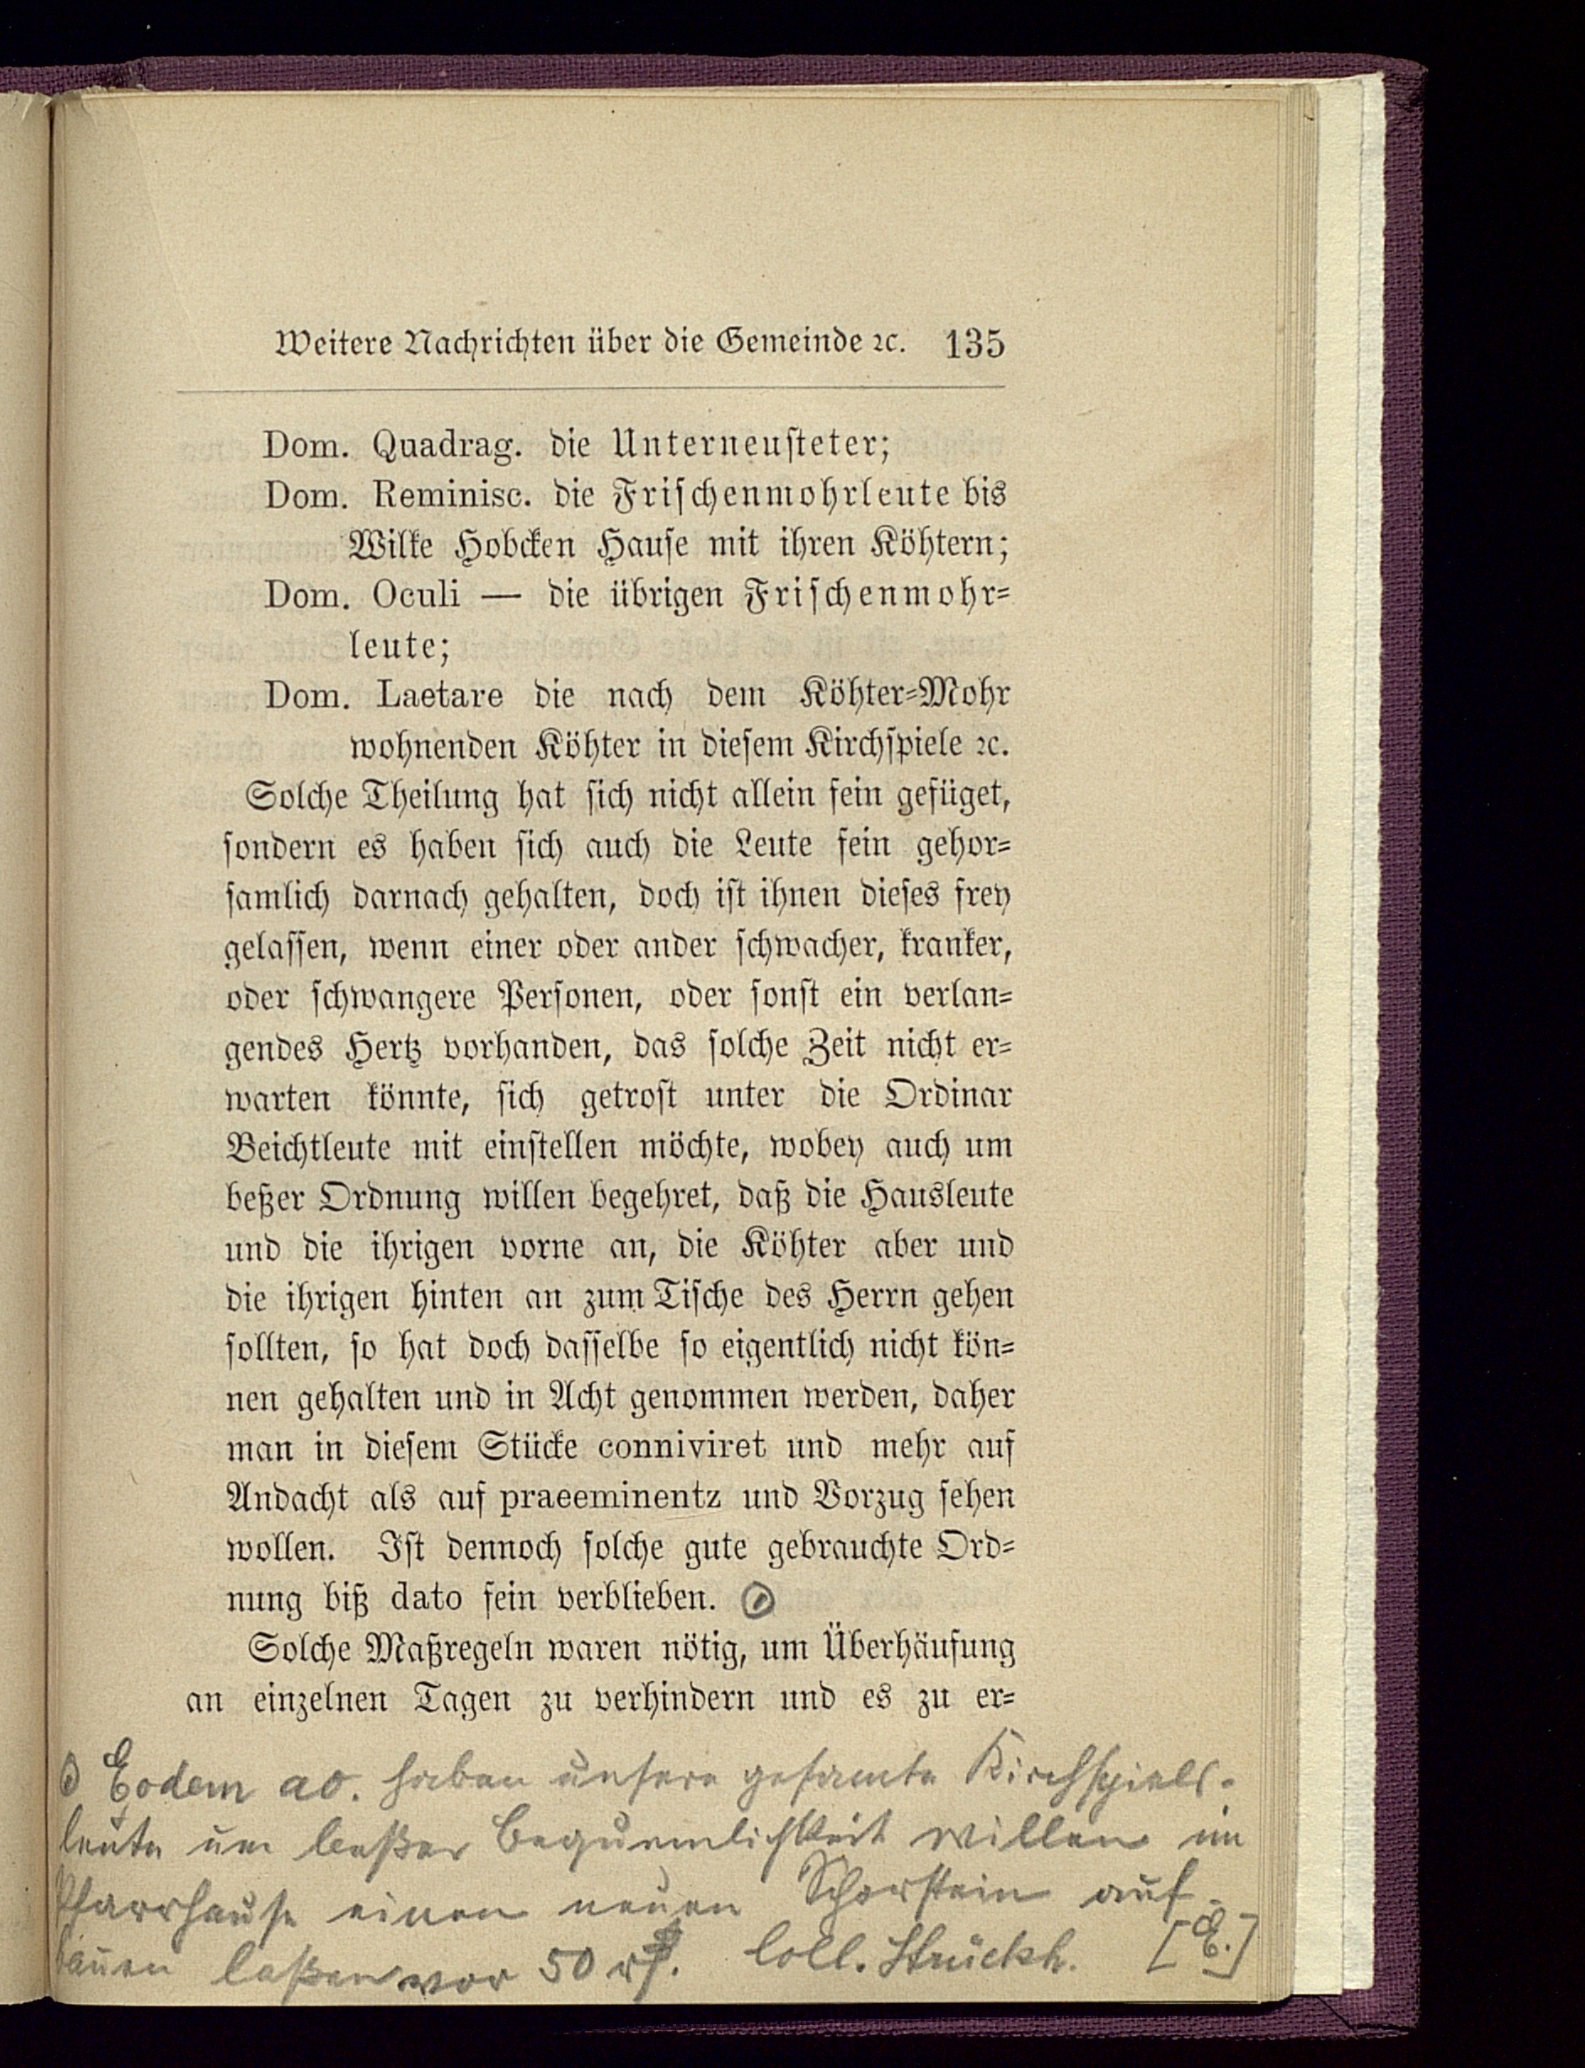 Weitere Nachrichten über die Gemeinde ꝛc. 135
Dom. Quadrag. die Unterneusteter;
Dom. Reminisc. die Frischenmohrleute bis
Wilke Hobcken Hause mit ihren Köhtern;
Dom. Oculi — die übrigen Frischenmohr=
leute;
Dom. Laetare die nach dem Köhter=Mohr
wohnenden Köhter in diesem Kirchspiele ꝛc.
Solche Theilung hat sich nicht allein fein gefüget,
sondern es haben sich auch die Leute fein gehor=
samlich darnach gehalten, doch ist ihnen dieses frey
gelassen, wenn einer oder ander schwacher, kranker,
oder schwangere Personen, oder sonst ein verlan=
gendes Hertz vorhanden, das solche Zeit nicht er=
warten könnte, sich getrost unter die Ordinar
Beichtleute mit einstellen möchte, wobey auch um
beßer Ordnung willen begehret, daß die Hausleute
und die ihrigen vorne an, die Köhter aber und
die ihrigen hinten an zum Tische des Herrn gehen
sollten, so hat doch dasselbe so eigentlich nicht kön=
nen gehalten und in Acht genommen werden, daher
man in diesem Stücke conniviret und mehr auf
Andacht als auf praeeminentz und Vorzug sehen
wollen. Ist dennoch solche gute gebrauchte Ord=
nung biß dato fein verblieben.
Solche Maßregeln waren nötig, um Überhäufung
an einzelnen Tagen zu verhindern und es zu er=
Eodem ao. haben unsere gesamte Kirchspiels-
leute um beßer Bequemlichkeit willen im
Pfarrhause einen neuen Schorstein auf-
bauen laßen vor 50 Coll. Strückh. [E.]